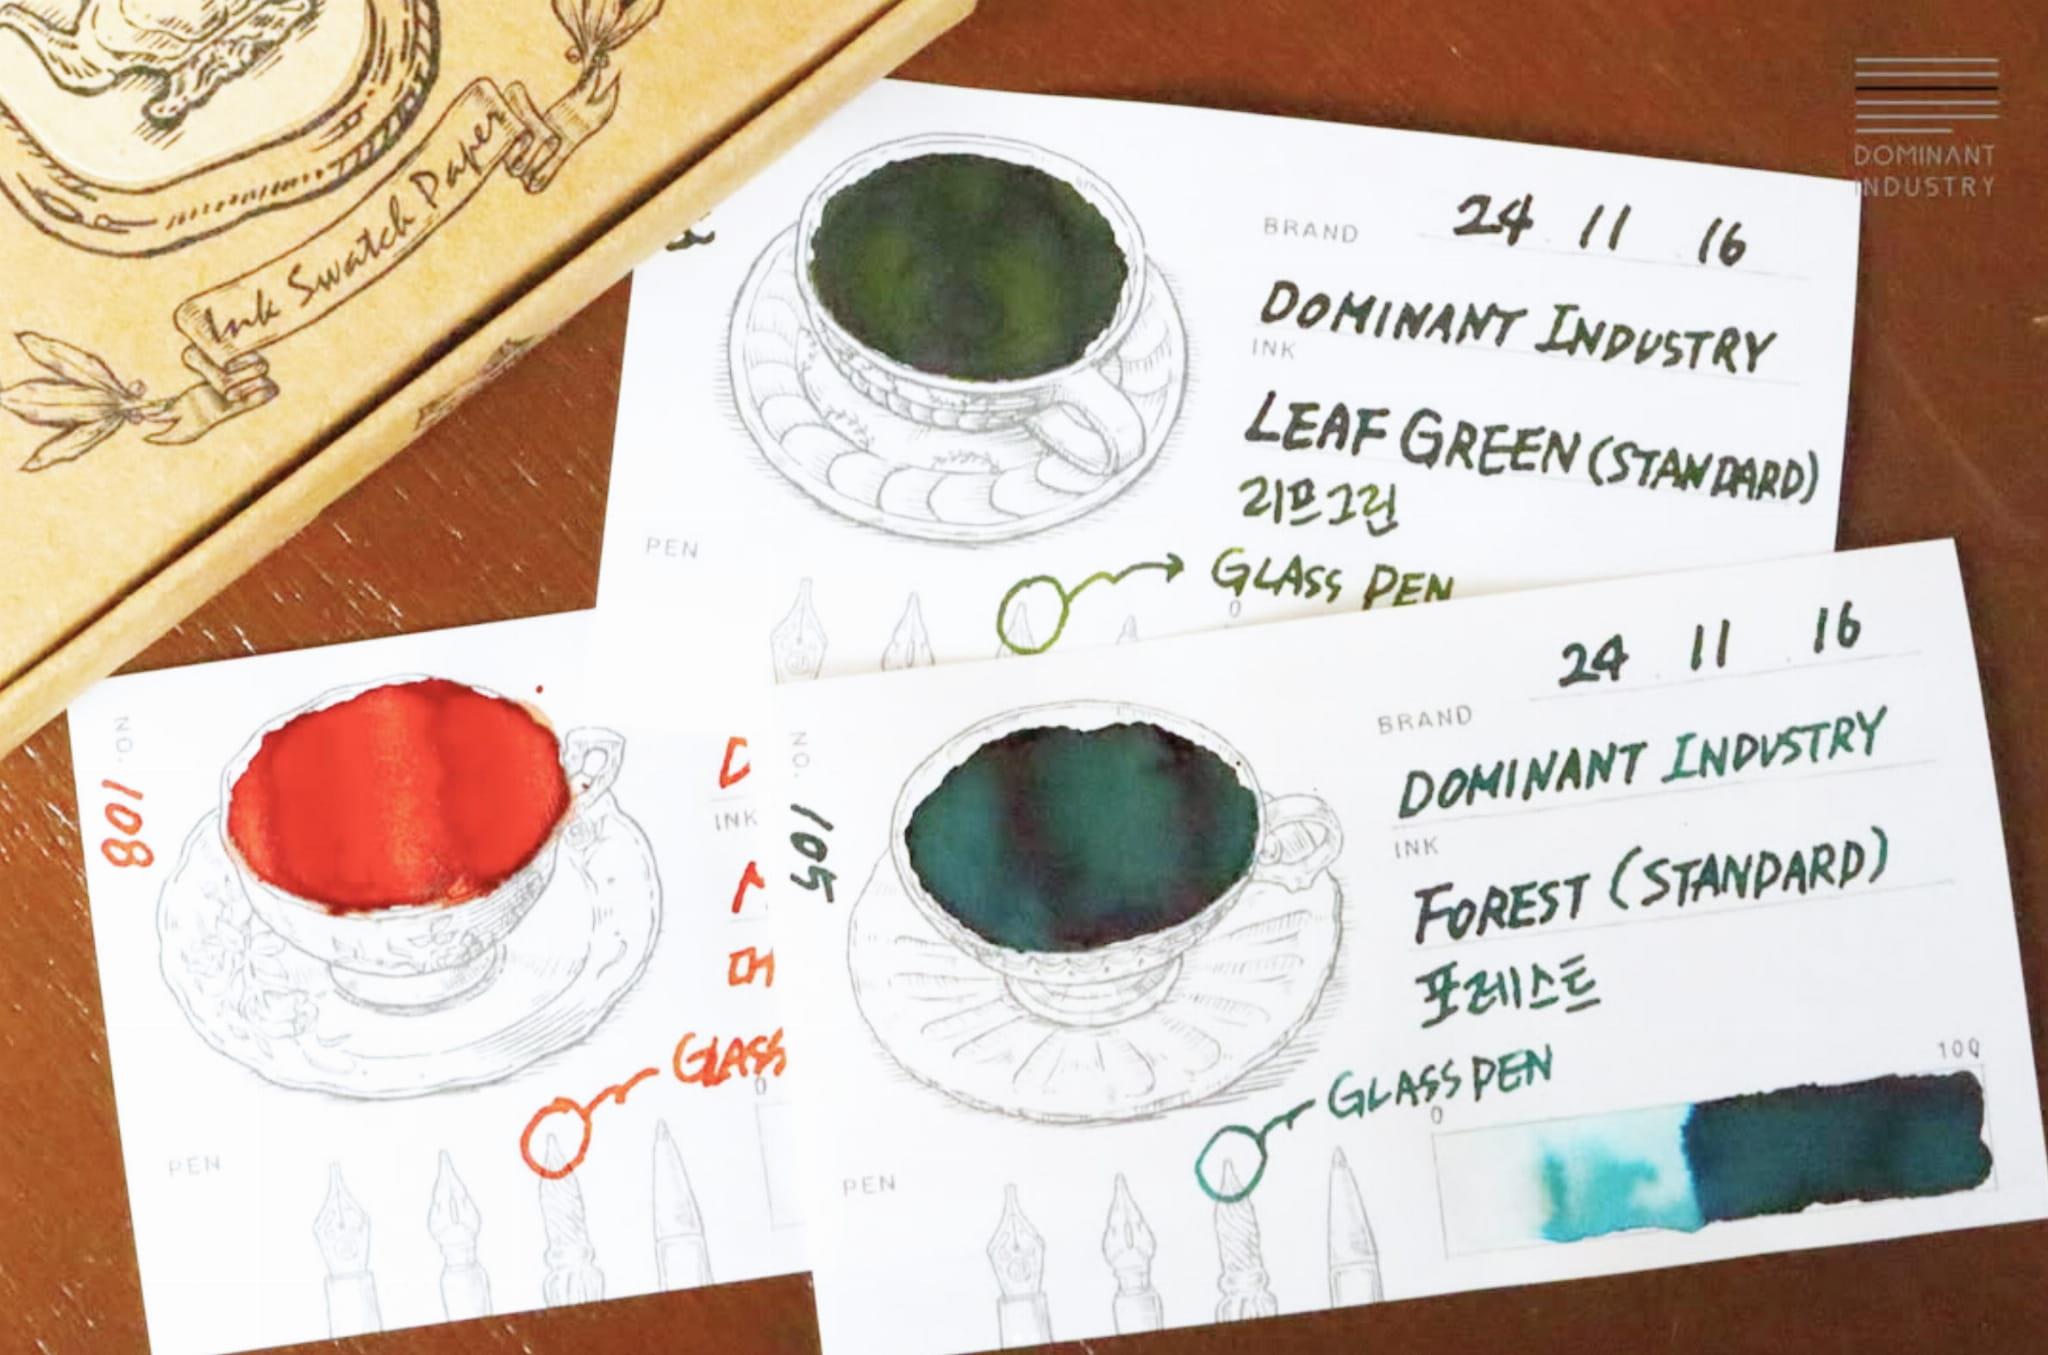 Ink Swatch Paper
DOMINANT
INDUSTRY
BRAND
24 11 16
DOMINANT INDUSTRY
INK
LEAF GREEN (STANDARD)
리프그린
GLASS PEN
PEN
0
NO.
108
INK
GLASS
0
PEN
NO.
105
24 11 16
BRAND
DOMINANT INDUSTRY
INK
FOREST (STANDARD)
포레스트
GLASS PEN
0
100
PEN